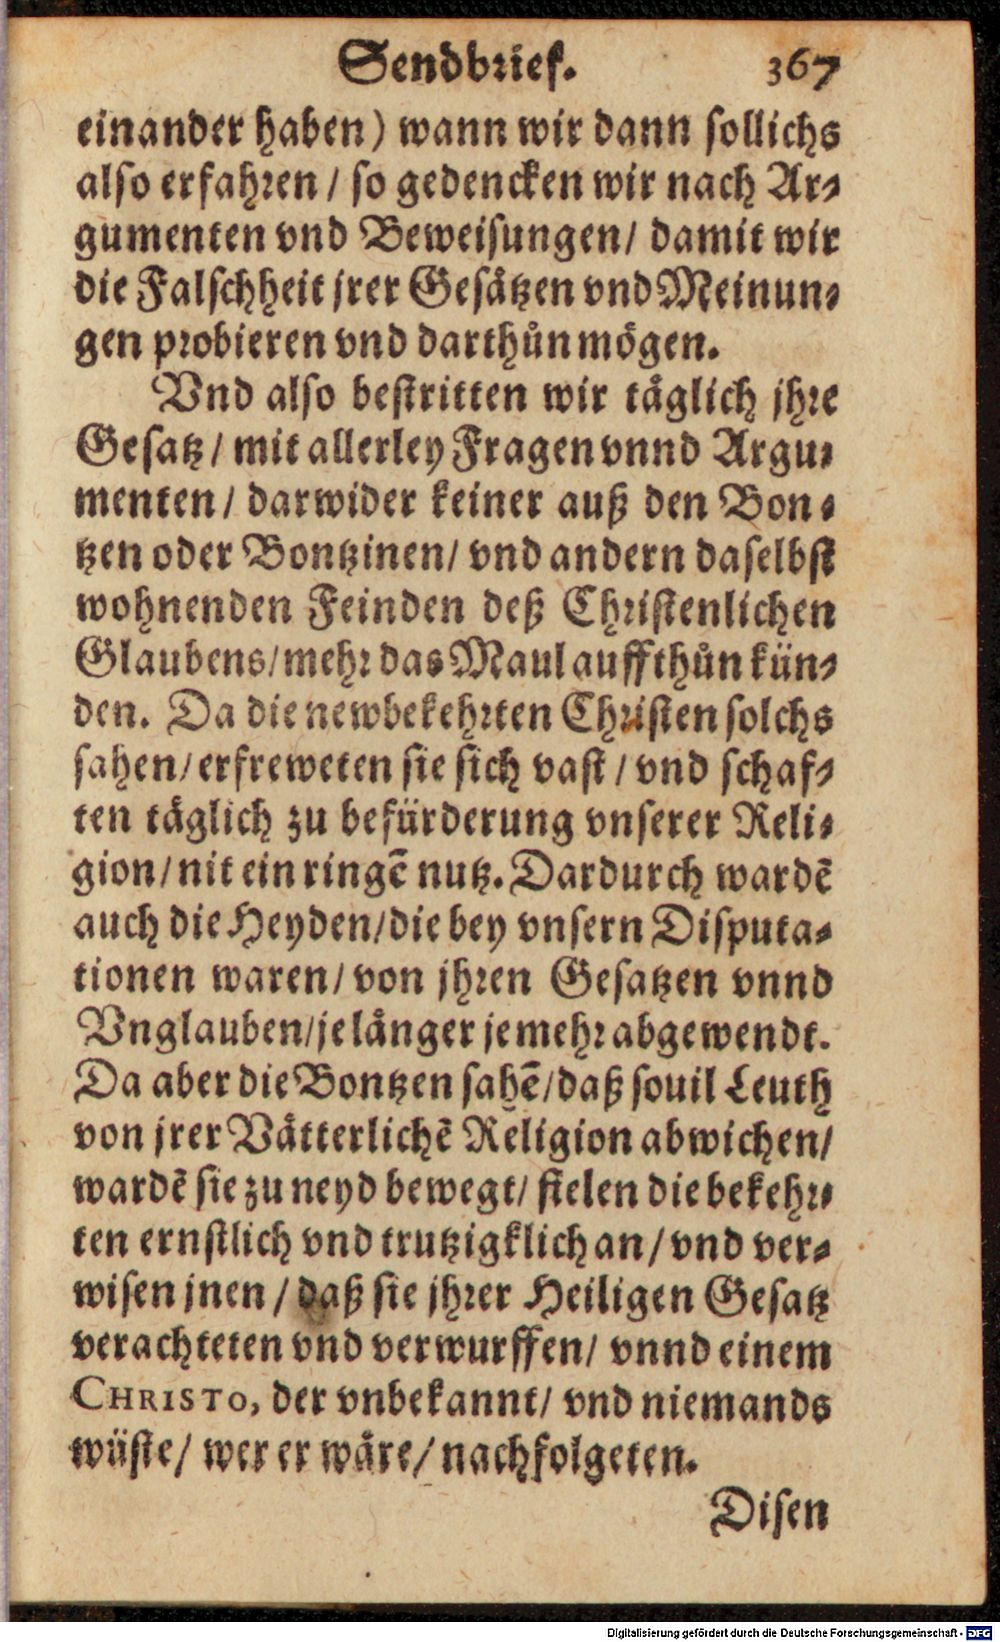 Sendbrief. 367
einander haben) wann wir dann sollichs
also erfahren / so gedencken wir nach Ar⸗
gumenten vnd Beweisungen/ damit wir
die Falschheit jrer Gesåtzen vnd Meinun⸗
gen probieren vnd darthůn mögen.
Vnd also bestritten wir täglich jhre
Gesatz / mit allerley Fragen vnnd Argu⸗
menten / darwider keiner auß den Bon⸗
tzen oder Bontzinen/ vnd andern daselbst
wohnenden Feinden deß Christenlichen
Glaubens/mehr das Maul auffthůn kün⸗
den. Da die newbekehrten Christen solchs
sahen/ erfreweten sie sich vast / vnd schaf⸗
ten täglich zu befürderung vnserer Reli⸗
gion / nit ein ringē nutz. Dardurch wardē
auch die Heyden/die bey vnsern Disputa⸗
tionen waren/ von jhren Gesatzen vnnd
Vnglauben/je länger je mehr abgewendt.
Da aber die Bontzen sahē/daß souil Leuth
von jrer Vätterlichē Religion abwichen/
wardē sie zu neyd bewegt/ fielen die bekehr⸗
ten ernstlich vnd trutzigklich an / vnd ver⸗
wisen jnen / daß sie jhrer Heiligen Gesatz
verachteten vnd verwurffen/ vnnd einem
CHRISTO, der vnbekannt/ vnd niemands
wüste/ wer er wåre/ nachfolgeten.
Disen
Digitalisierung gefördert durch die Deutsche Forschungsgemeinschaft - DFG